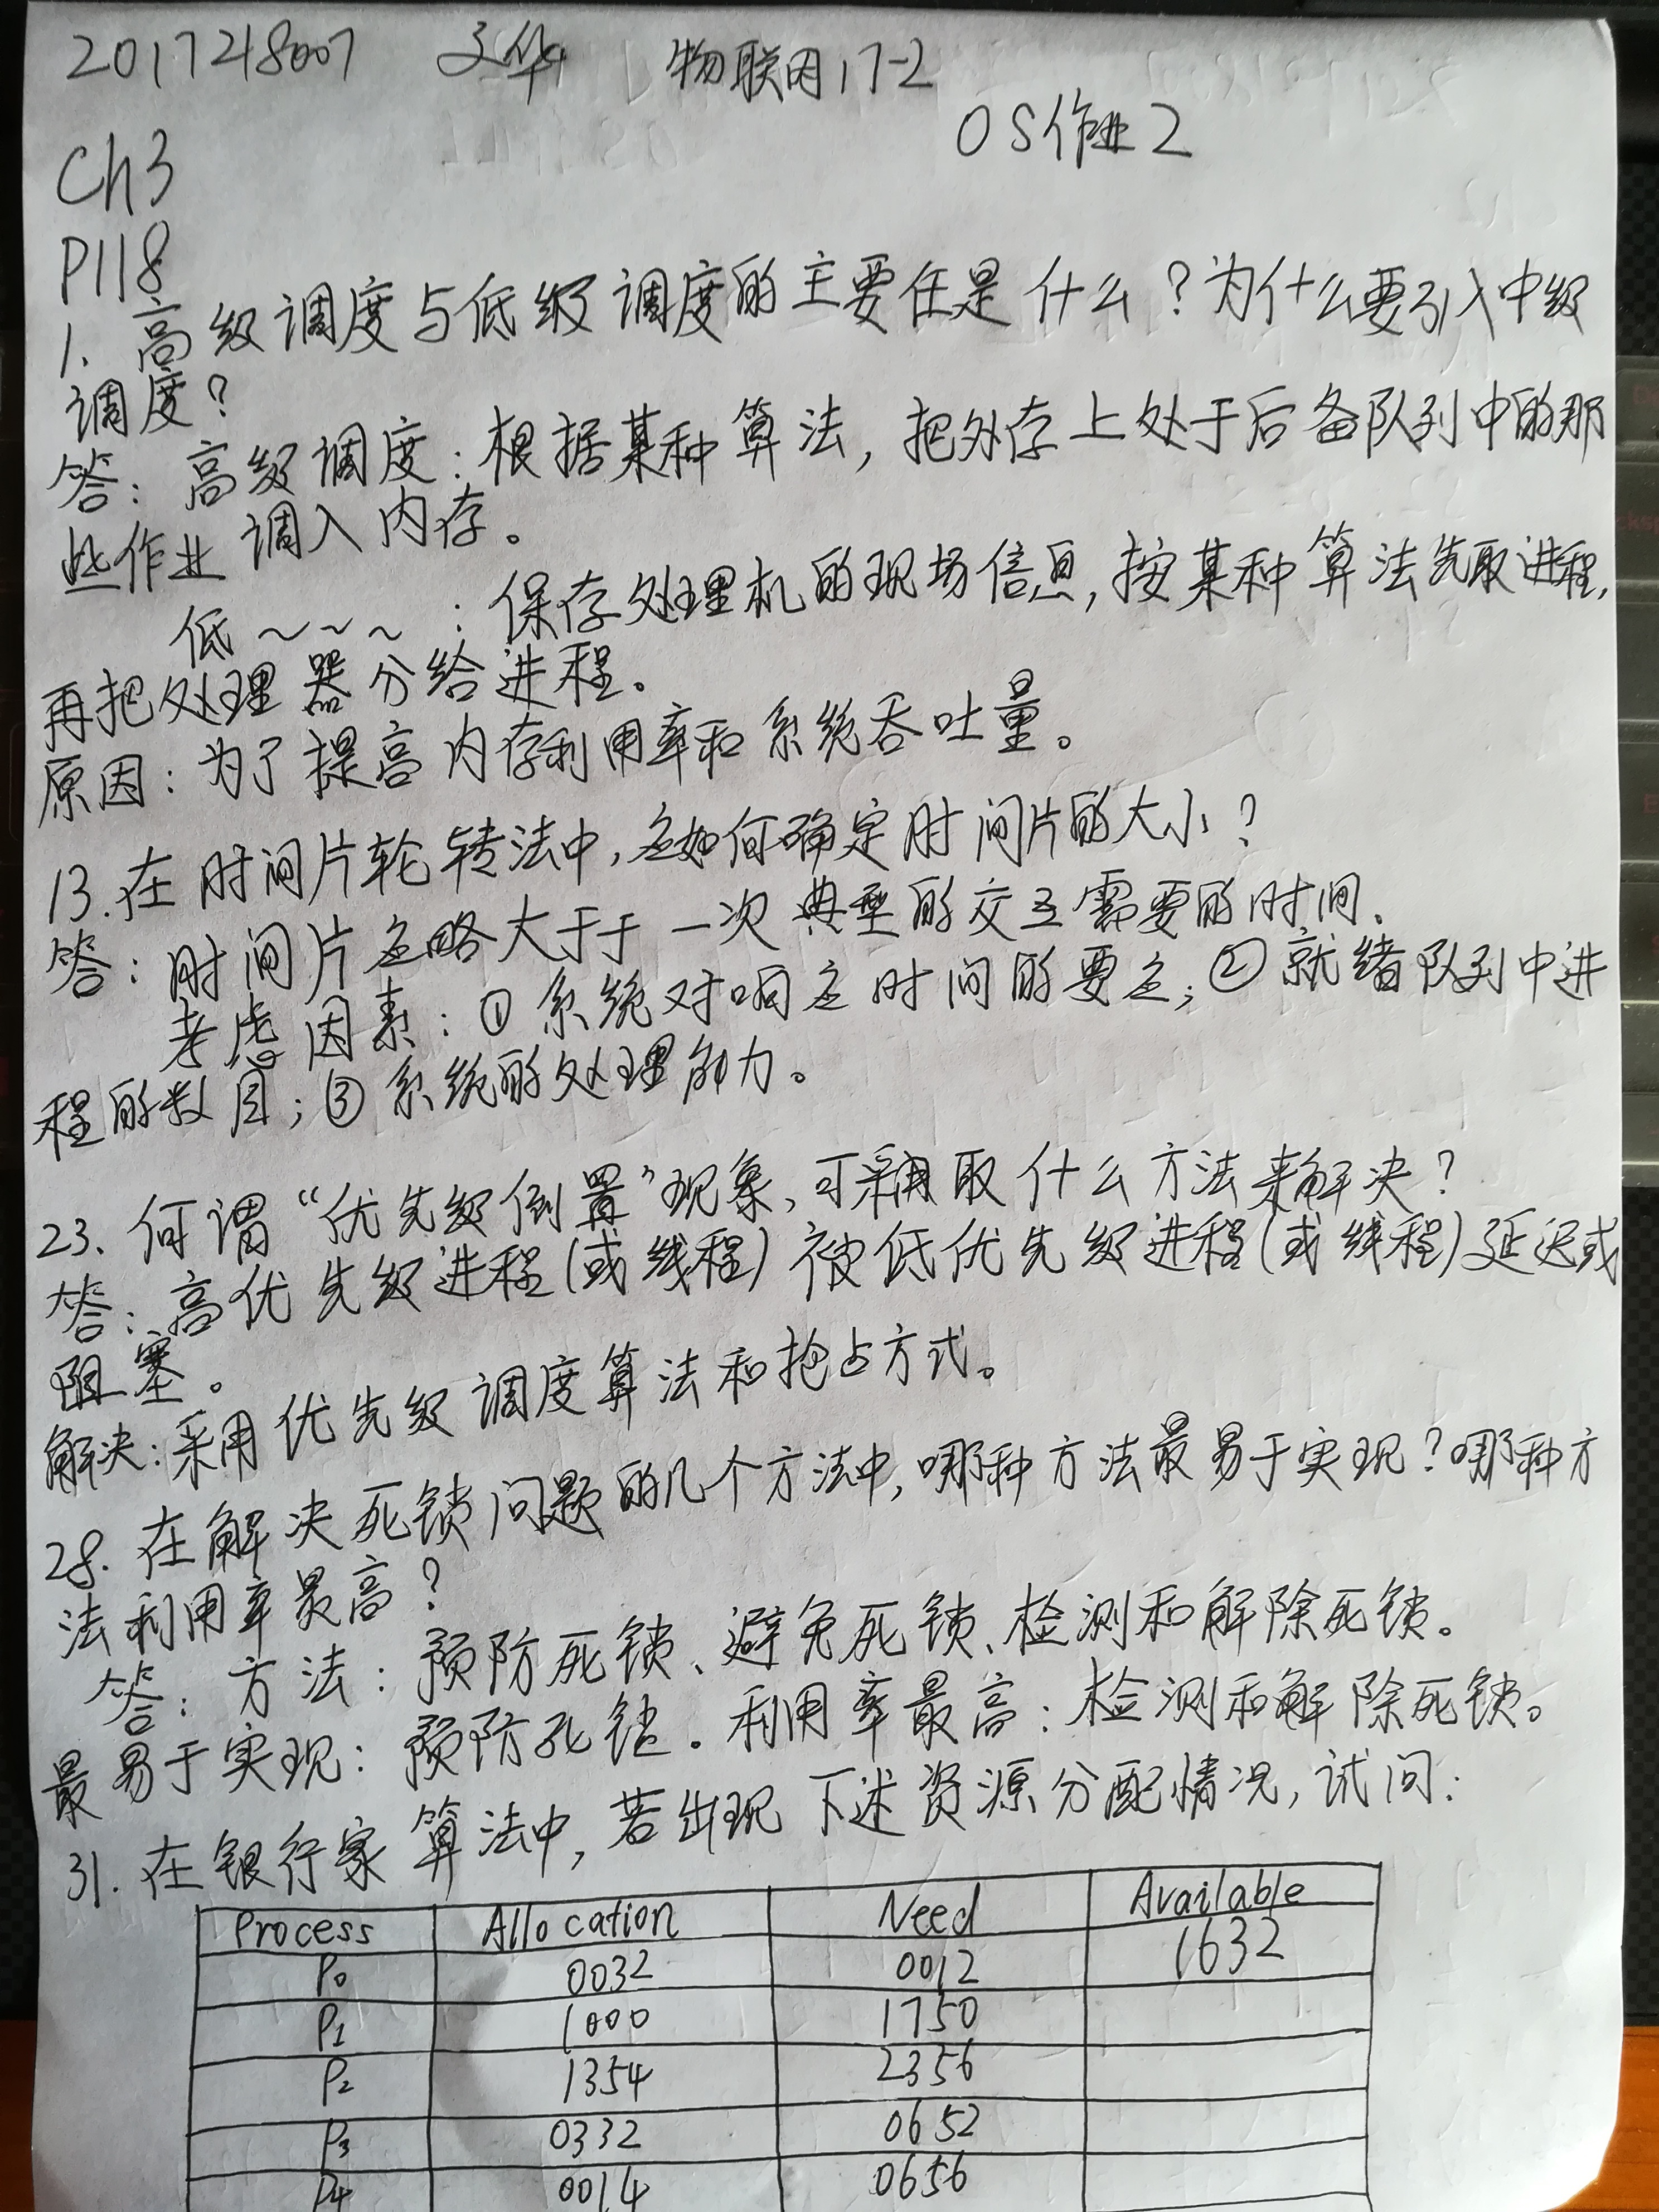 2017218007 文华 物联网17-2
OS作业2
Ch3
P118
1. 高级调度与低级调度的主要任是什么?为什么要引入中级
调度?
答:高级调度:根据某种算法,把外存上处于后备队列中的那
些作业调入内存。
低~~~:保存处理机的现场信息,按某种算法先取进程,
再把处理器分给进程。
原因:为了提高内存利用率和系统吞吐量。
13.在时间片轮转法中,应如何确定时间片的大小?
答:时间片应略大于于一次典型的交互需要的时间.
考虑因素:①系统对响应时间的要应;②就绪队列中进
程的数目;③系统的处理能力。
23. 何谓“优先级倒置”现象,可采取什么方法来解决?
答:高优先级进程(或线程)被低优先级进程(或线程)延迟或
阻塞。
解决:采用优先级调度算法和抢占方式。
28. 在解决死锁问题的几个方法中,哪种方法最易于实现?哪种方
法利用率最高?
答:方法:预防死锁、避免死锁、检测和解除死锁。
最易于实现:预防死锁.利用率最高:检测和解除死锁。
31. 在银行家算法中,若出现下述资源分配情况,试问:
Process Allocation Need Available
P0 0032 0012 1632
P1 1000 1750
P2 1354 2356
P3 0332 0652
P4 0014 0656